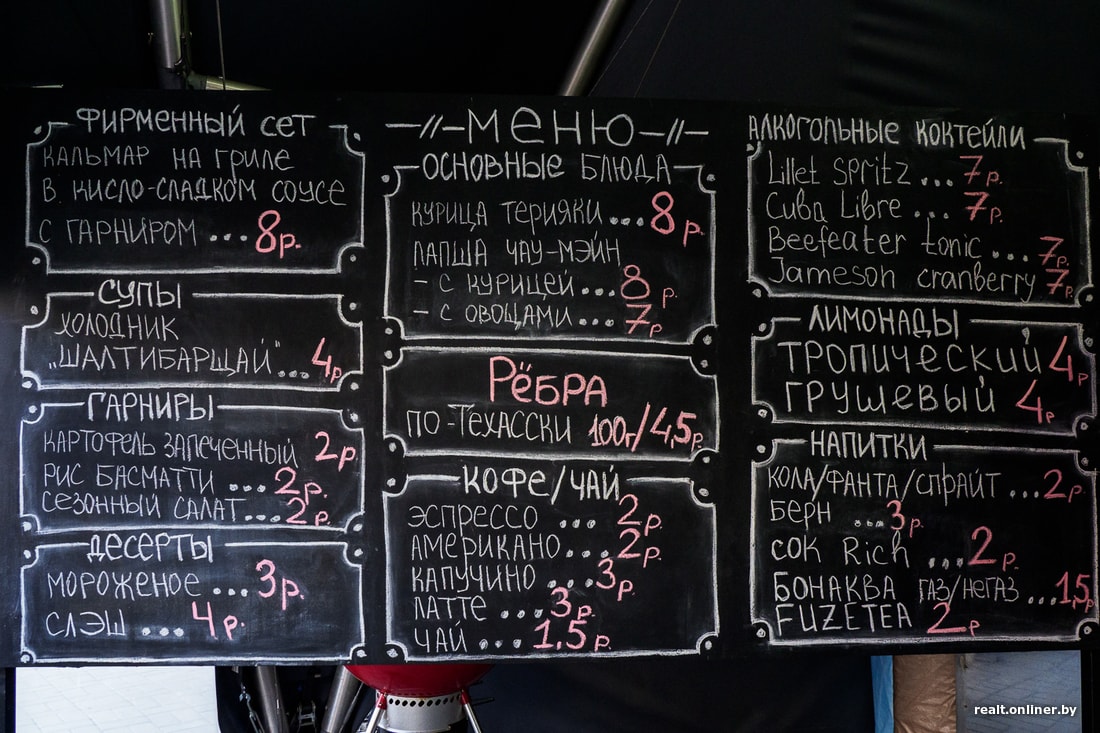 ФИРМЕННЫЙ СЕТ
КАЛЬМАР НА ГРИЛЕ
В КИСЛО-СЛАДКОМ СОУСЕ
С ГАРНИРОМ ... 8р.
СУПЫ
ХОЛОДНИК
„ШАЛТИБАРЩАЙ" ... 4р
ГАРНИРЫ
КАРТОФЕЛЬ ЗАПЕЧЕННЫЙ 2р
РИС БАСМАТТИ ... 2р.
СЕЗОННЫЙ САЛАТ... 2р.
ДЕСЕРТЫ
МОРОЖЕНОЕ ... 3р.
СЛЭШ ... 4р.
—//—МЕНЮ—//—
ОСНОВНЫЕ БЛЮДА
КУРИЦА ТЕРИЯКИ... 8р.
ЛАПША ЧАУ-МЭЙН
- С КУРИЦЕЙ... 8р.
- С ОВОЩАМИ... 7р
РЁБРА
ПО-ТЕХАССКИ 100г/4,5р.
КОФЕ/ЧАЙ
ЭСПРЕССО ... 2р.
АМЕРИКАНО... 2р.
КАПУЧИНО ... 3р
ЛАТТЕ ... 3р.
ЧАЙ ... 1.5р.
АЛКОГОЛЬНЫЕ КОКТЕЙЛИ
Lillet Spritz ... 7р.
Cuba Libre ... 7р.
Beefeater tonic ... 7р.
Jameson cranberry 7р.
ЛИМОНАДЫ
ТРОПИЧЕСКИЙ 4р
ГРУШЕВЫЙ 4р
НАПИТКИ
КОЛА/ФАНТА/СПРАЙТ ... 2р.
БЕРН ... 3р.
СОК Rich ... 2р.
БОНАКВА ГАЗ/НЕГАЗ ... 1,5р.
FUZETEA 2р
realt.onliner.by